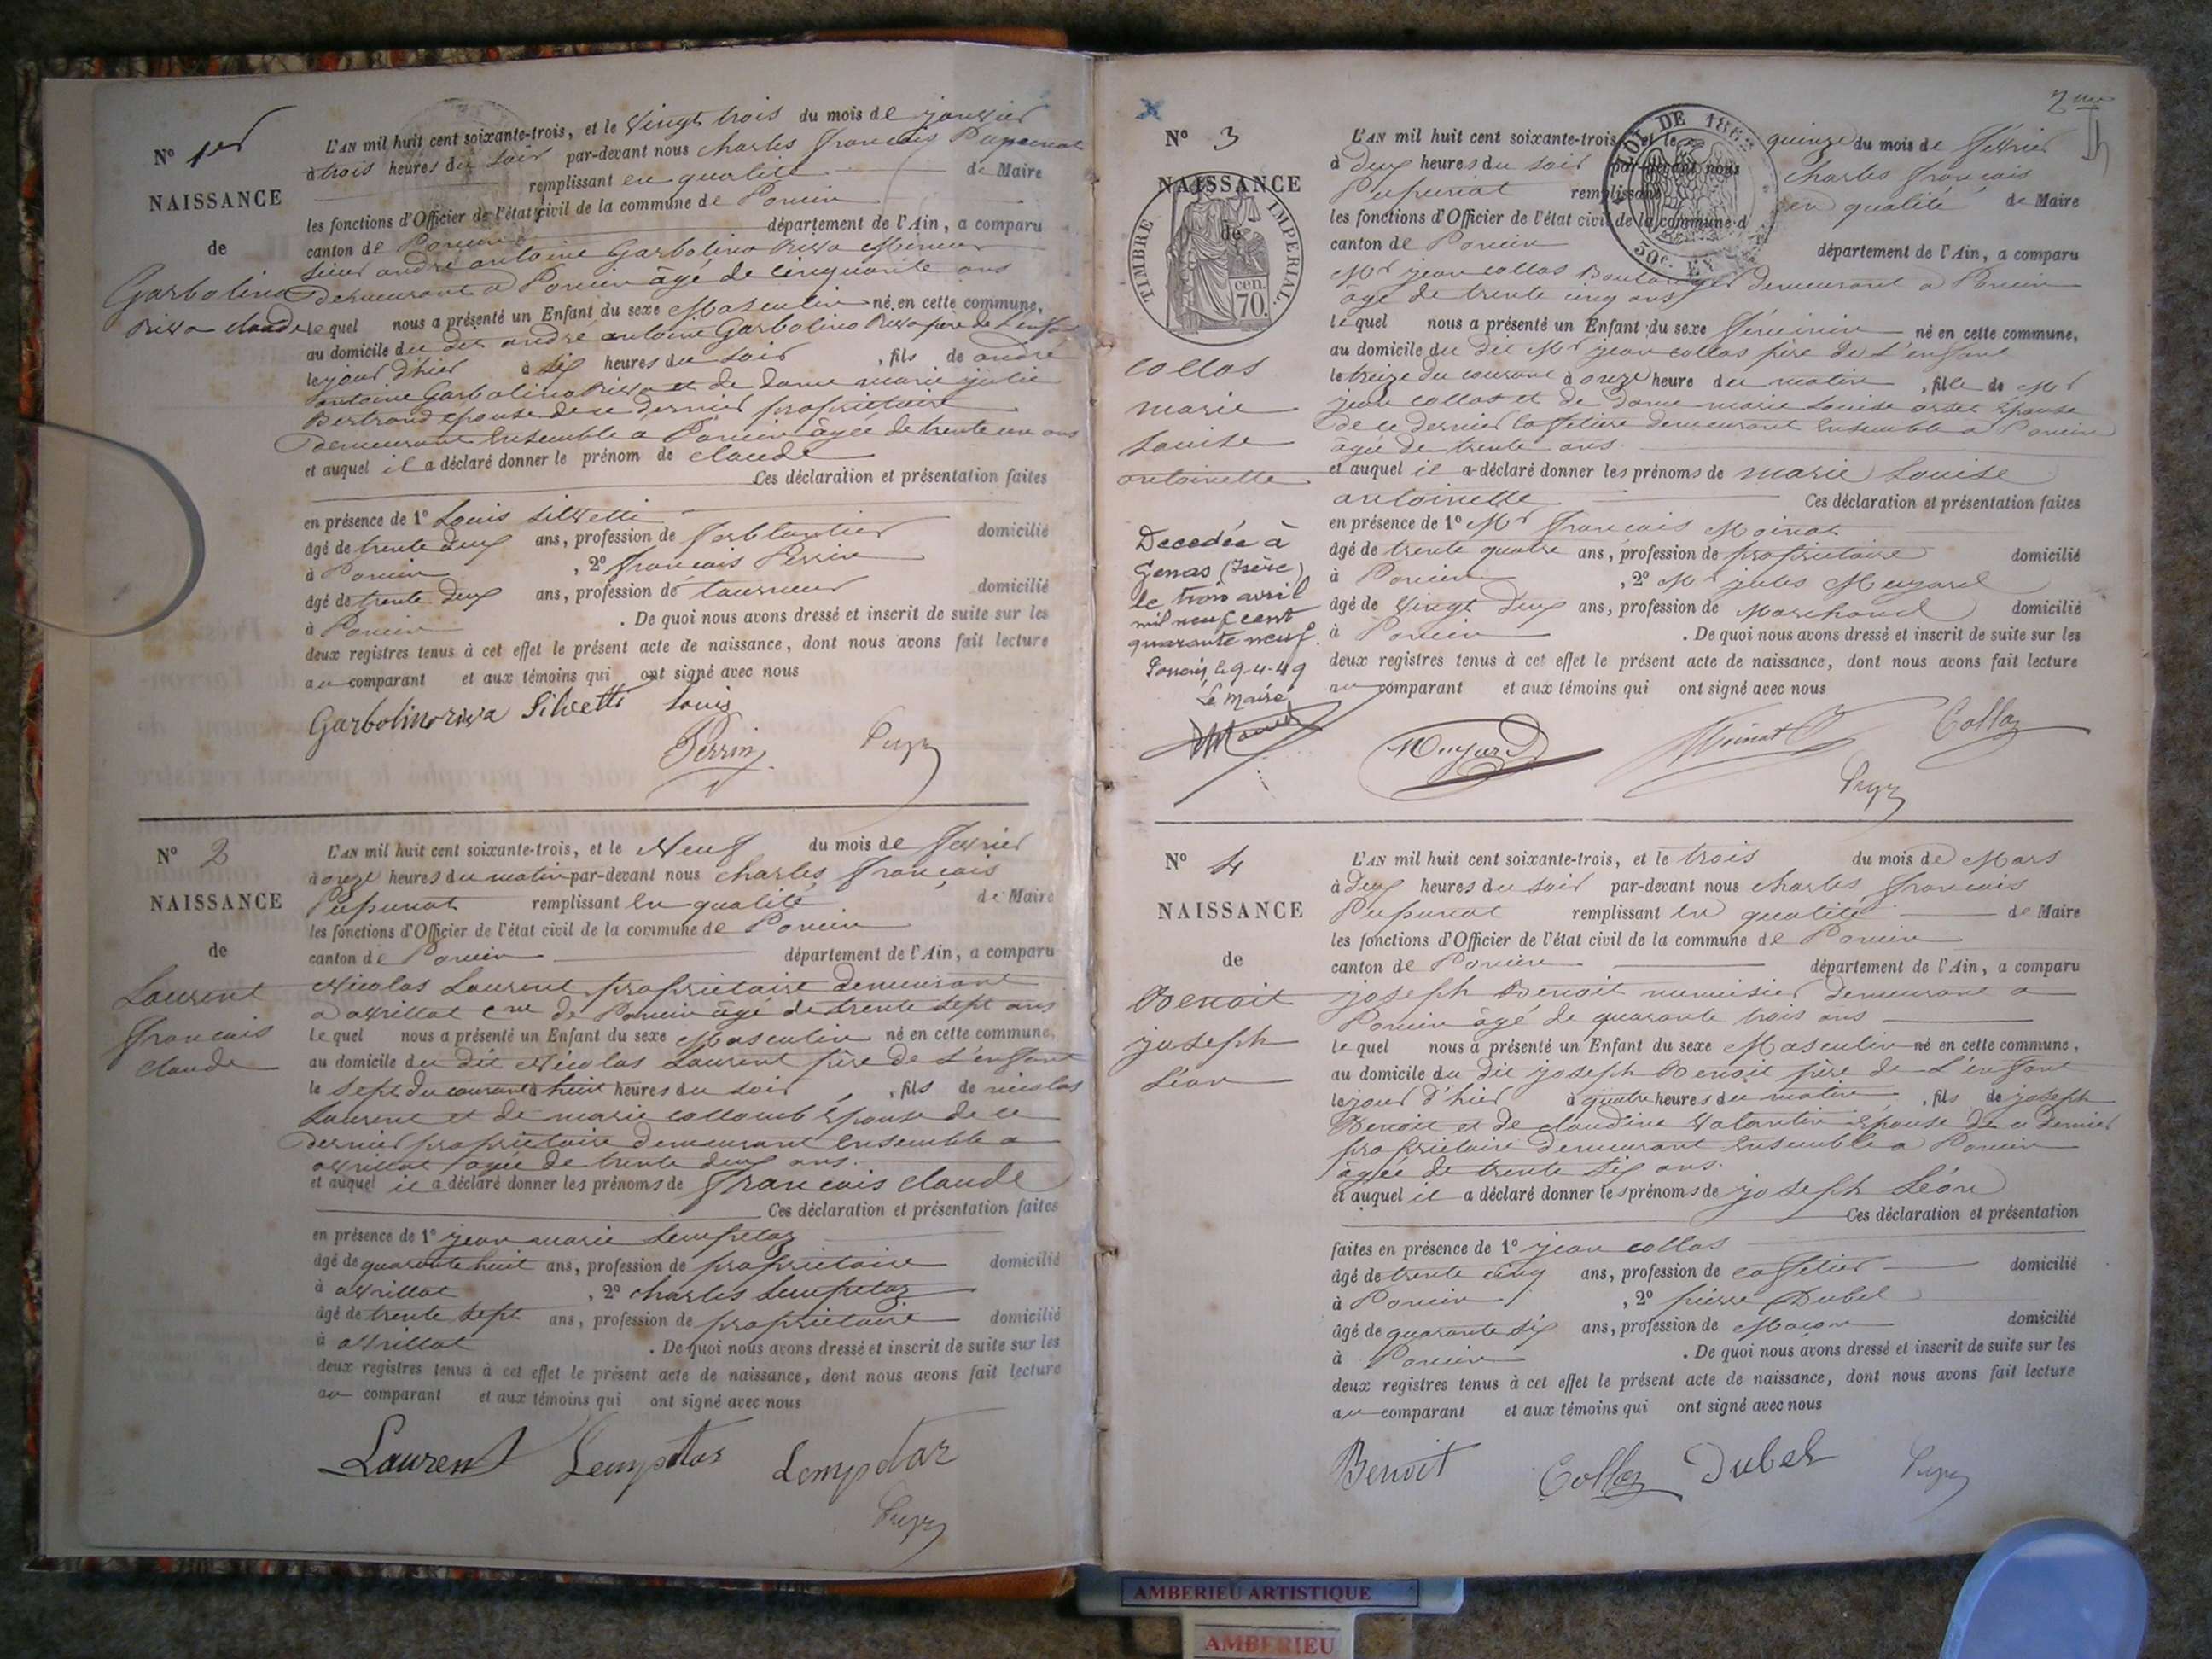 N° 1er
NAISSANCE
de
Garbolino
Riva claude
L'AN mil huit cent soixante-trois, et le Vingt trois du mois de janvier
à trois heures du soir par-devant nous charles francois Pupunat
remplissant en qualité de Maire
les fonctions d'Officier de l'état civil de la commune de Poncin
canton de Poncin département de l'Ain, a comparu
sieur andré antoine Garbolino Riva
demeurant a Poncin âgé de cinquante ans
lequel nous a présenté un Enfant du sexe Masculin né en cette commune,
au domicile du dit andré antoine Garbolino Riva père de l'enfant
le jour d'hier à six heures du soir, fils de andré
antoine Garbolino Riva et de dame marie julie
Bertrand epouse de ce dernier propriétaire
demeurant ensemble a Poncin âgée de trente un ans
et auquel il a déclaré donner le prénom de claude
Ces déclaration et présentation faites
en présence de 1° Louis Silvetti
âgé de trente deux ans, profession de ferblantier domicilié
à Poncin, 2° francois Perrin
âgé de trente deux ans, profession de tourneur domicilié
à Poncin. De quoi nous avons dressé et inscrit de suite sur les
deux registres tenus à cet effet le présent acte de naissance, dont nous avons fait lecture
au comparant et aux témoins qui ont signé avec nous
Garbolinoriva Silvetti Louis
Perrin
N° 2
NAISSANCE
de
Laurent
francois
claude
L'AN mil huit cent soixante-trois, et le Neuf du mois de fevrier
à onze heures du matin par-devant nous charles françois
Pupunat remplissant en qualité de Maire
les fonctions d'Officier de l'état civil de la commune de Poncin
canton de Poncin département de l'Ain, a comparu
Nicolas Laurent propriétaire demeurant
a avrillat cne de Poncin âgé de trente sept ans
lequel nous a présenté un Enfant du sexe Masculin né en cette commune,
au domicile du dit Nicolas Laurent père de l'enfant
le sept du courant à huit heures du soir, fils de nicolas
Laurent et de marie collomb épouse de ce
dernier propriétaire demeurant ensemble a
avrillat agée de trente deux ans.
et auquel il a déclaré donner les prénoms de francois claude
Ces déclaration et présentation faites
en présence de 1° jean marie Lempetaz
âgé de quarante huit ans, profession de propriétaire domicilié
à avrillat, 2° charles Lempetaz
âgé de trente sept ans, profession de propriétaire domicilié
à avrillat. De quoi nous avons dressé et inscrit de suite sur les
deux registres tenus à cet effet le présent acte de naissance, dont nous avons fait lecture
au comparant et aux témoins qui ont signé avec nous
Laurent Lempetas Lempetaz
2me
N° 3
NAISSANCE
de
TIMBRE IMPERIAL.
cen. 70.
LOI DE 1862
50c. EN
collas
marie
Louise
antoinette
Decedée à
Genas (Isère)
le trois avril
mil neuf cent
quarante neuf.
Poncin, le 9-4-49
Le Maire
L'AN mil huit cent soixante-trois, et le quinze du mois de fevrier
à deux heures du soir par-devant nous charles francois
Pupunat remplissant en qualité de Maire
les fonctions d'Officier de l'état civil de la commune d
canton de Poncin département de l'Ain, a comparu
Mr jean collas Boulanger demeurant a Poncin
âgé de trente cinq ans
lequel nous a présenté un Enfant du sexe féminin né en cette commune,
au domicile du dit Mr jean collas père de l'enfant
le treize du courant à onze heure du matin, fille de Mr
jean collas et de dame marie Louise orset épouse
de ce dernier cafetière demeurant ensemble a Poncin
âgée de trente ans
et auquel il a déclaré donner les prénoms de marie Louise
antoinette Ces déclaration et présentation faites
en présence de 1° Mr francois Moinat
âgé de trente quatre ans, profession de propriétaire domicilié
à Poncin, 2° Mr jules Meynard
âgé de Vingt deux ans, profession de Marchand domicilié
à Poncin. De quoi nous avons dressé et inscrit de suite sur les
deux registres tenus à cet effet le présent acte de naissance, dont nous avons fait lecture
au comparant et aux témoins qui ont signé avec nous
Moinat Collaz
N° 4
NAISSANCE
de
Benoit
joseph
Léon
L'AN mil huit cent soixante-trois, et le trois du mois de Mars
à deux heures du soir par-devant nous charles francois
Pupunat remplissant en qualité de Maire
les fonctions d'Officier de l'état civil de la commune de Poncin
canton de Poncin département de l'Ain, a comparu
joseph Benoit menuisier demeurant a
Poncin âgé de quarante trois ans
lequel nous a présenté un Enfant du sexe Masculin né en cette commune,
au domicile du dit joseph Benoit père de l'enfant
le jour d'hier à quatre heures du matin, fils de joseph
Benoit et de claudine Valantin épouse de ce dernier
propriétaire demeurant ensemble a Poncin
âgée de trente six ans.
et auquel il a déclaré donner les prénoms de joseph Léon
Ces déclaration et présentation
faites en présence de 1° jean collas
âgé de trente cinq ans, profession de cafetier domicilié
à Poncin, 2° pierre Dubel
âgé de quarante six ans, profession de Maçon domicilié
à Poncin. De quoi nous avons dressé et inscrit de suite sur les
deux registres tenus à cet effet le présent acte de naissance, dont nous avons fait lecture
au comparant et aux témoins qui ont signé avec nous
Benoit Collaz Dubel
AMBERIEU ARTISTIQUE
AMBERIEU